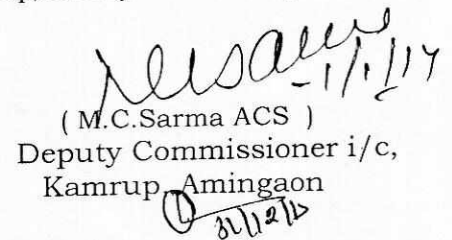 -1/1/17
( M.C.Sarma ACS )
Deputy Commissioner i/c,
Kamrup, Amingaon